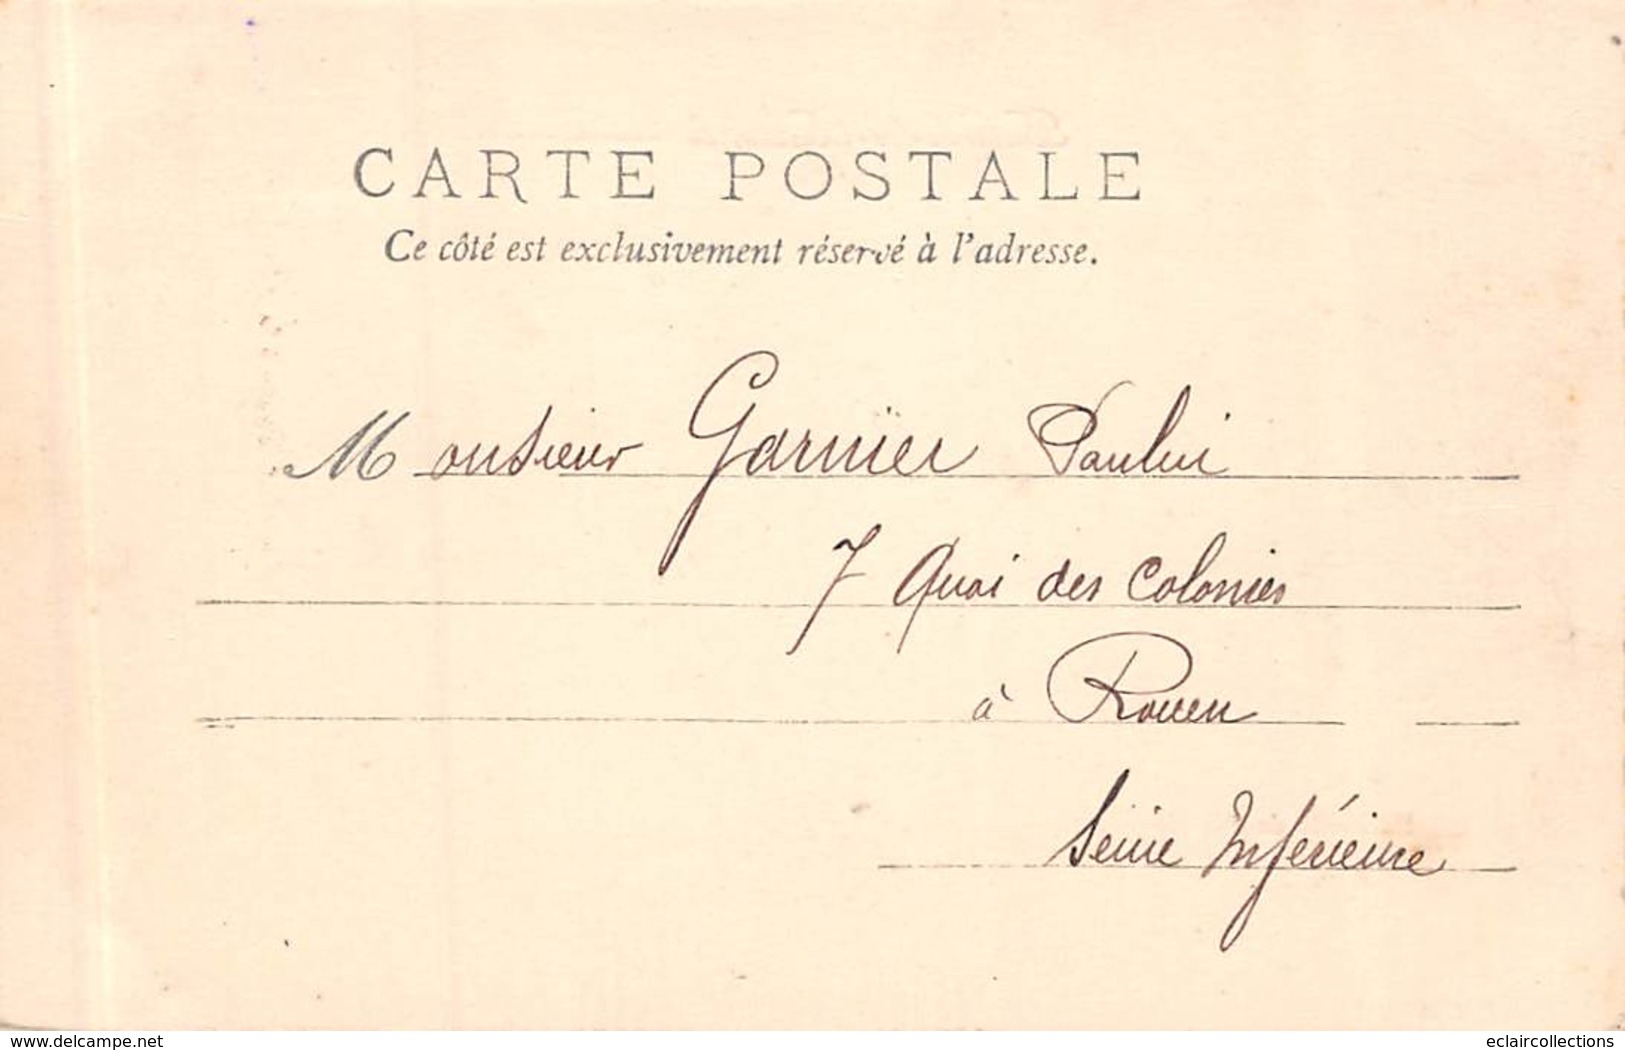 CARTE POSTALE
Ce côté est exclusivement réservé à l'adresse.
Monsieur Garnier Paulin
7 Quai des Colonies
à Rouen
Seine Inférieure
www.delcampe.net
eclaircollections